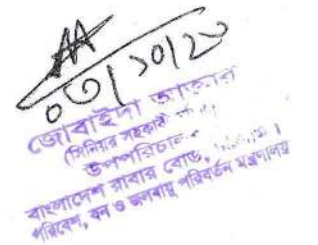 ০৩/১০/২৩
জোবাইদা আক্তার
(সিনিয়র সহকারী
উপপরিচালক
বাংলাদেশ রাবার বোর্ড,
পরিবেশ, বন ও জলবায়ু পরিবর্তন মন্ত্রণালয়